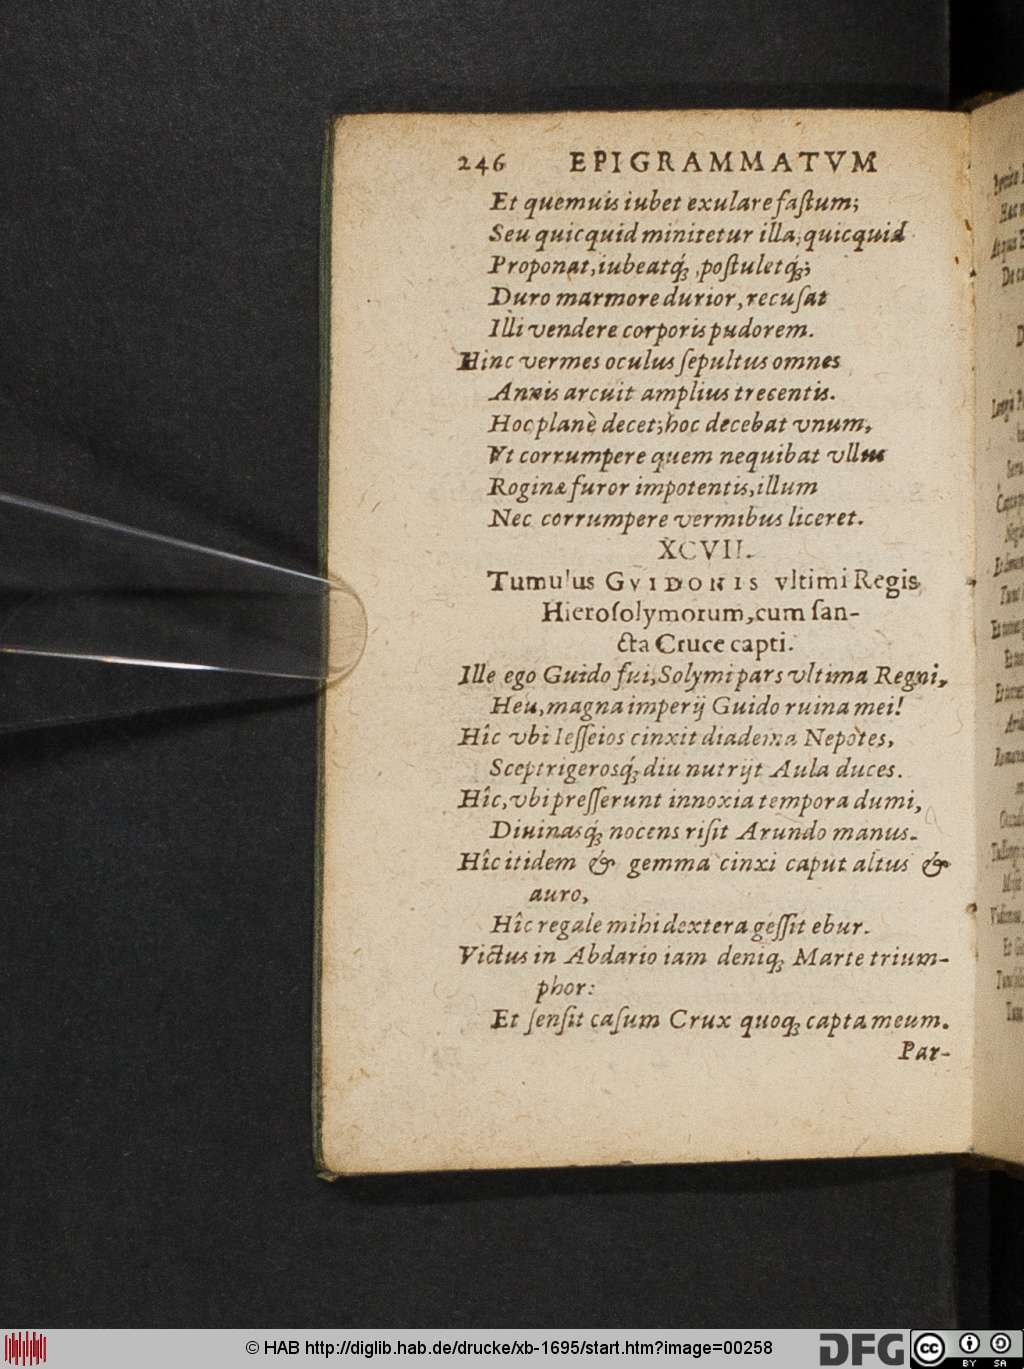 246 EPIGRAMMATVM
Et quemuis iubet exulare faſtum;
Seu quicquid minitetur illa, quicquid
Proponat, iubeatq́ꝫ, poſtuletq́ꝫ;
Duro marmore durior, recuſat
Illi vendere corporis pudorem.
Hinc vermes oculus ſepultus omnes
Annis arcuit amplius trecentis.
Hoc planè decet; hoc decebat vnum,
Vt corrumpere quem nequibat vllus
Roginæ furor impotentis, illum
Nec corrumpere vermibus liceret.
XCVII.
Tumulus GVIDONIS vltimi Regis
Hieroſolymorum, cum ſan-
cta Cruce capti.
Ille ego Guido fui, Solymi pars vltima Regni,
Heu, magna imperij Guido ruina mei!
Hîc vbi Ieſſeios cinxit diadema Nepotes,
Sceptrigerosq́ꝫ diu nutrijt Aula duces.
Hîc, vbi preſſerunt innoxia tempora dumi,
Diuinasq́ꝫ nocens riſit Arundo manus.
Hîc itidem & gemma cinxi caput altus &
auro,
Hîc regale mihi dextera geſſit ebur.
Victus in Abdario iam deniqꝫ Marte trium-
phor:
Et ſenſit caſum Crux quoqꝫ capta meum.
Par-
© HAB http://diglib.hab.de/drucke/xb-1695/start.htm?image=00258
DFG
cc
BY SA